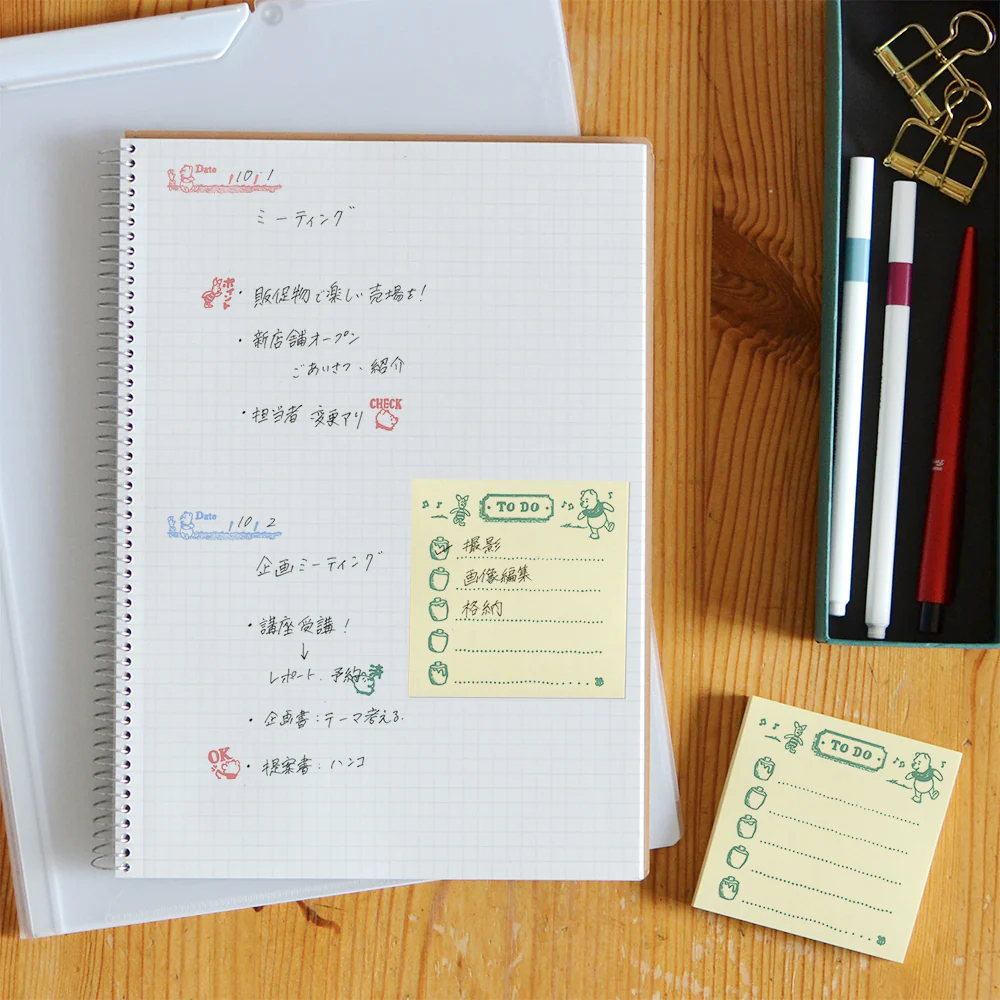 Date 10 1
ミーティング
ポイント ・販促物で楽しい売場を!
・新店舗オープン
ごあいさつ、紹介
・担当者 変更アリ CHECK
Date 10 2
企画ミーティング
・講座受講!
↓
レポート、予約
・企画書:テーマ考える.
OK ・提案書:ハンコ
TO DO
撮影
画像編集
格納
TO DO